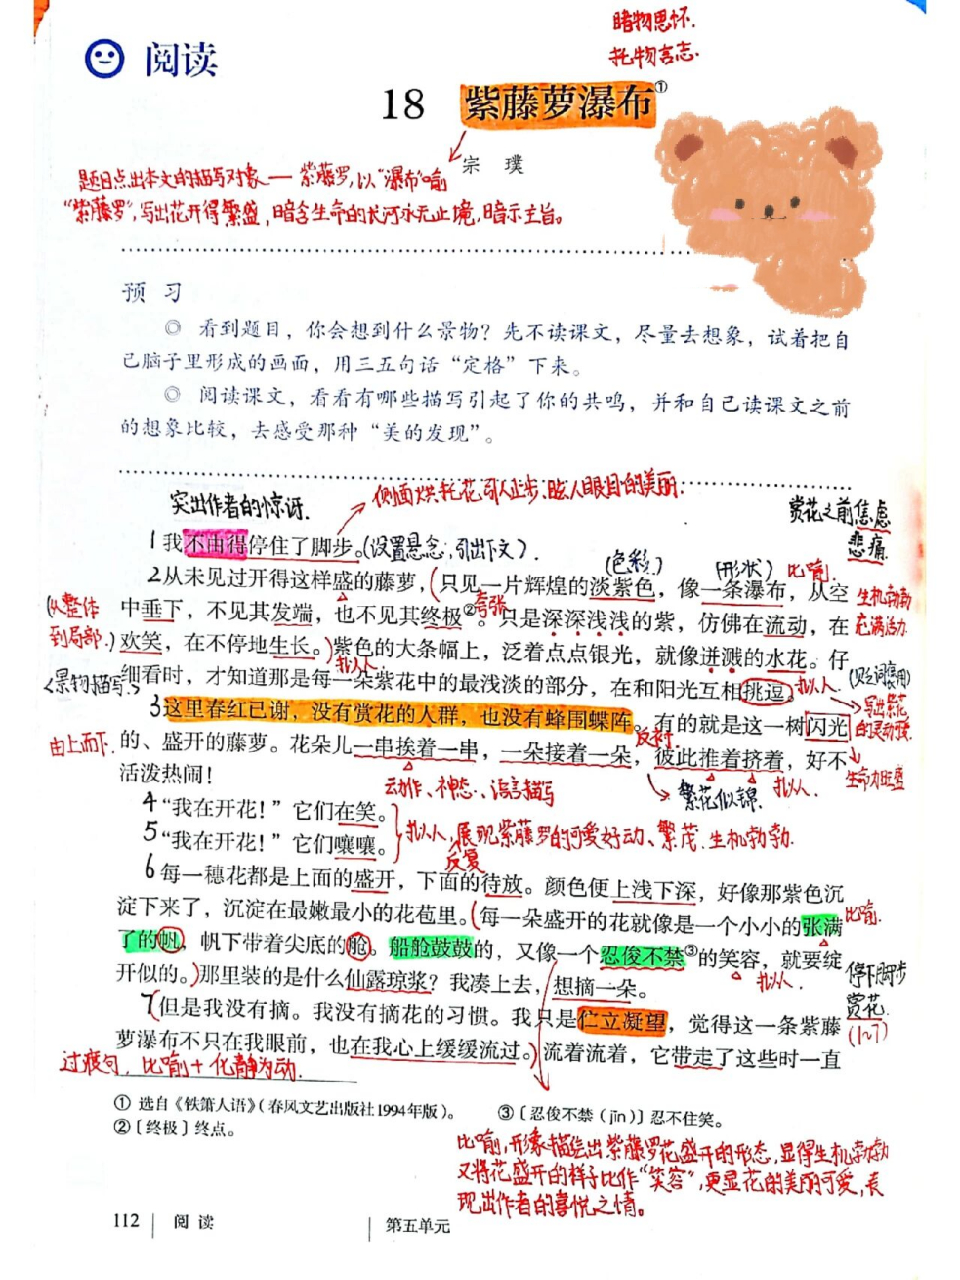 睹物思怀.
托物言志.
阅读
18 紫藤萝瀑布①
宗 璞
题目点出本文的描写对象—紫藤罗,以"瀑布"喻
"紫藤罗",写出花开得繁盛,暗含生命的长河永无止境,暗示主旨。
预 习
◎ 看到题目，你会想到什么景物？先不读课文，尽量去想象，试着把自
己脑子里形成的画面，用三五句话“定格”下来。
◎ 阅读课文，看看有哪些描写引起了你的共鸣，并和自己读课文之前
的想象比较，去感受那种“美的发现”。
突出作者的惊讶.
侧面烘托花引人止步、眩人眼目的美丽.
赏花之前焦虑
悲痛
1我不由得停住了脚步。(设置悬念,引出下文).
(色彩.)
(形状)
比喻.
2从未见过开得这样盛的藤萝，(只见一片辉煌的淡紫色，像一条瀑布，从空
生机勃勃
(从整体
夸张
中垂下，不见其发端，也不见其终极②。只是深深浅浅的紫，仿佛在流动，在
充满活力.
到局部.)
欢笑，在不停地生长。)紫色的大条幅上，泛着点点银光，就像迸溅的水花。仔
拟人.
<景物描写.>
细看时，才知道那是每一朵紫花中的最浅淡的部分，在和阳光互相挑逗。
拟人.
写出紫花
的灵动
3这里春红已谢，没有赏花的人群，也没有蜂围蝶阵。有的就是这一树闪光
反衬.
由上而下.
的、盛开的藤萝。花朵儿一串挨着一串，一朵接着一朵，彼此推着挤着，好不
活泼热闹！
动作、神态、语言描写
繁花似锦.
拟人.
生命力旺盛
4“我在开花！”它们在笑。
5“我在开花！”它们嚷嚷。
拟人、展现紫藤罗的可爱好动、繁茂.生机勃勃.
反复
6每一穗花都是上面的盛开，下面的待放。颜色便上浅下深，好像那紫色沉
淀下来了，沉淀在最嫩最小的花苞里。(每一朵盛开的花就像是一个小小的张满
比喻.
了的帆，帆下带着尖底的舱。船舱鼓鼓的，又像一个忍俊不禁③的笑容，就要绽
开似的。)那里装的是什么仙露琼浆？我凑上去，想摘一朵。
拟人.
停下脚步
赏花.
(1~7)
7(但是我没有摘。我没有摘花的习惯。我只是伫立凝望，觉得这一条紫藤
萝瀑布不只在我眼前，也在我心上缓缓流过。)流着流着，它带走了这些时一直
过渡句,比喻+化静为动.
① 选自《铁箫人语》（春风文艺出版社1994年版）。
③〔忍俊不禁（jīn）〕忍不住笑。
②〔终极〕终点。
比喻,形象描绘出紫藤罗花盛开的形态,显得生机勃勃
又将花盛开的样子比作"笑容",更显花的美丽可爱,表
现出作者的喜悦之情。
112 阅 读
第五单元